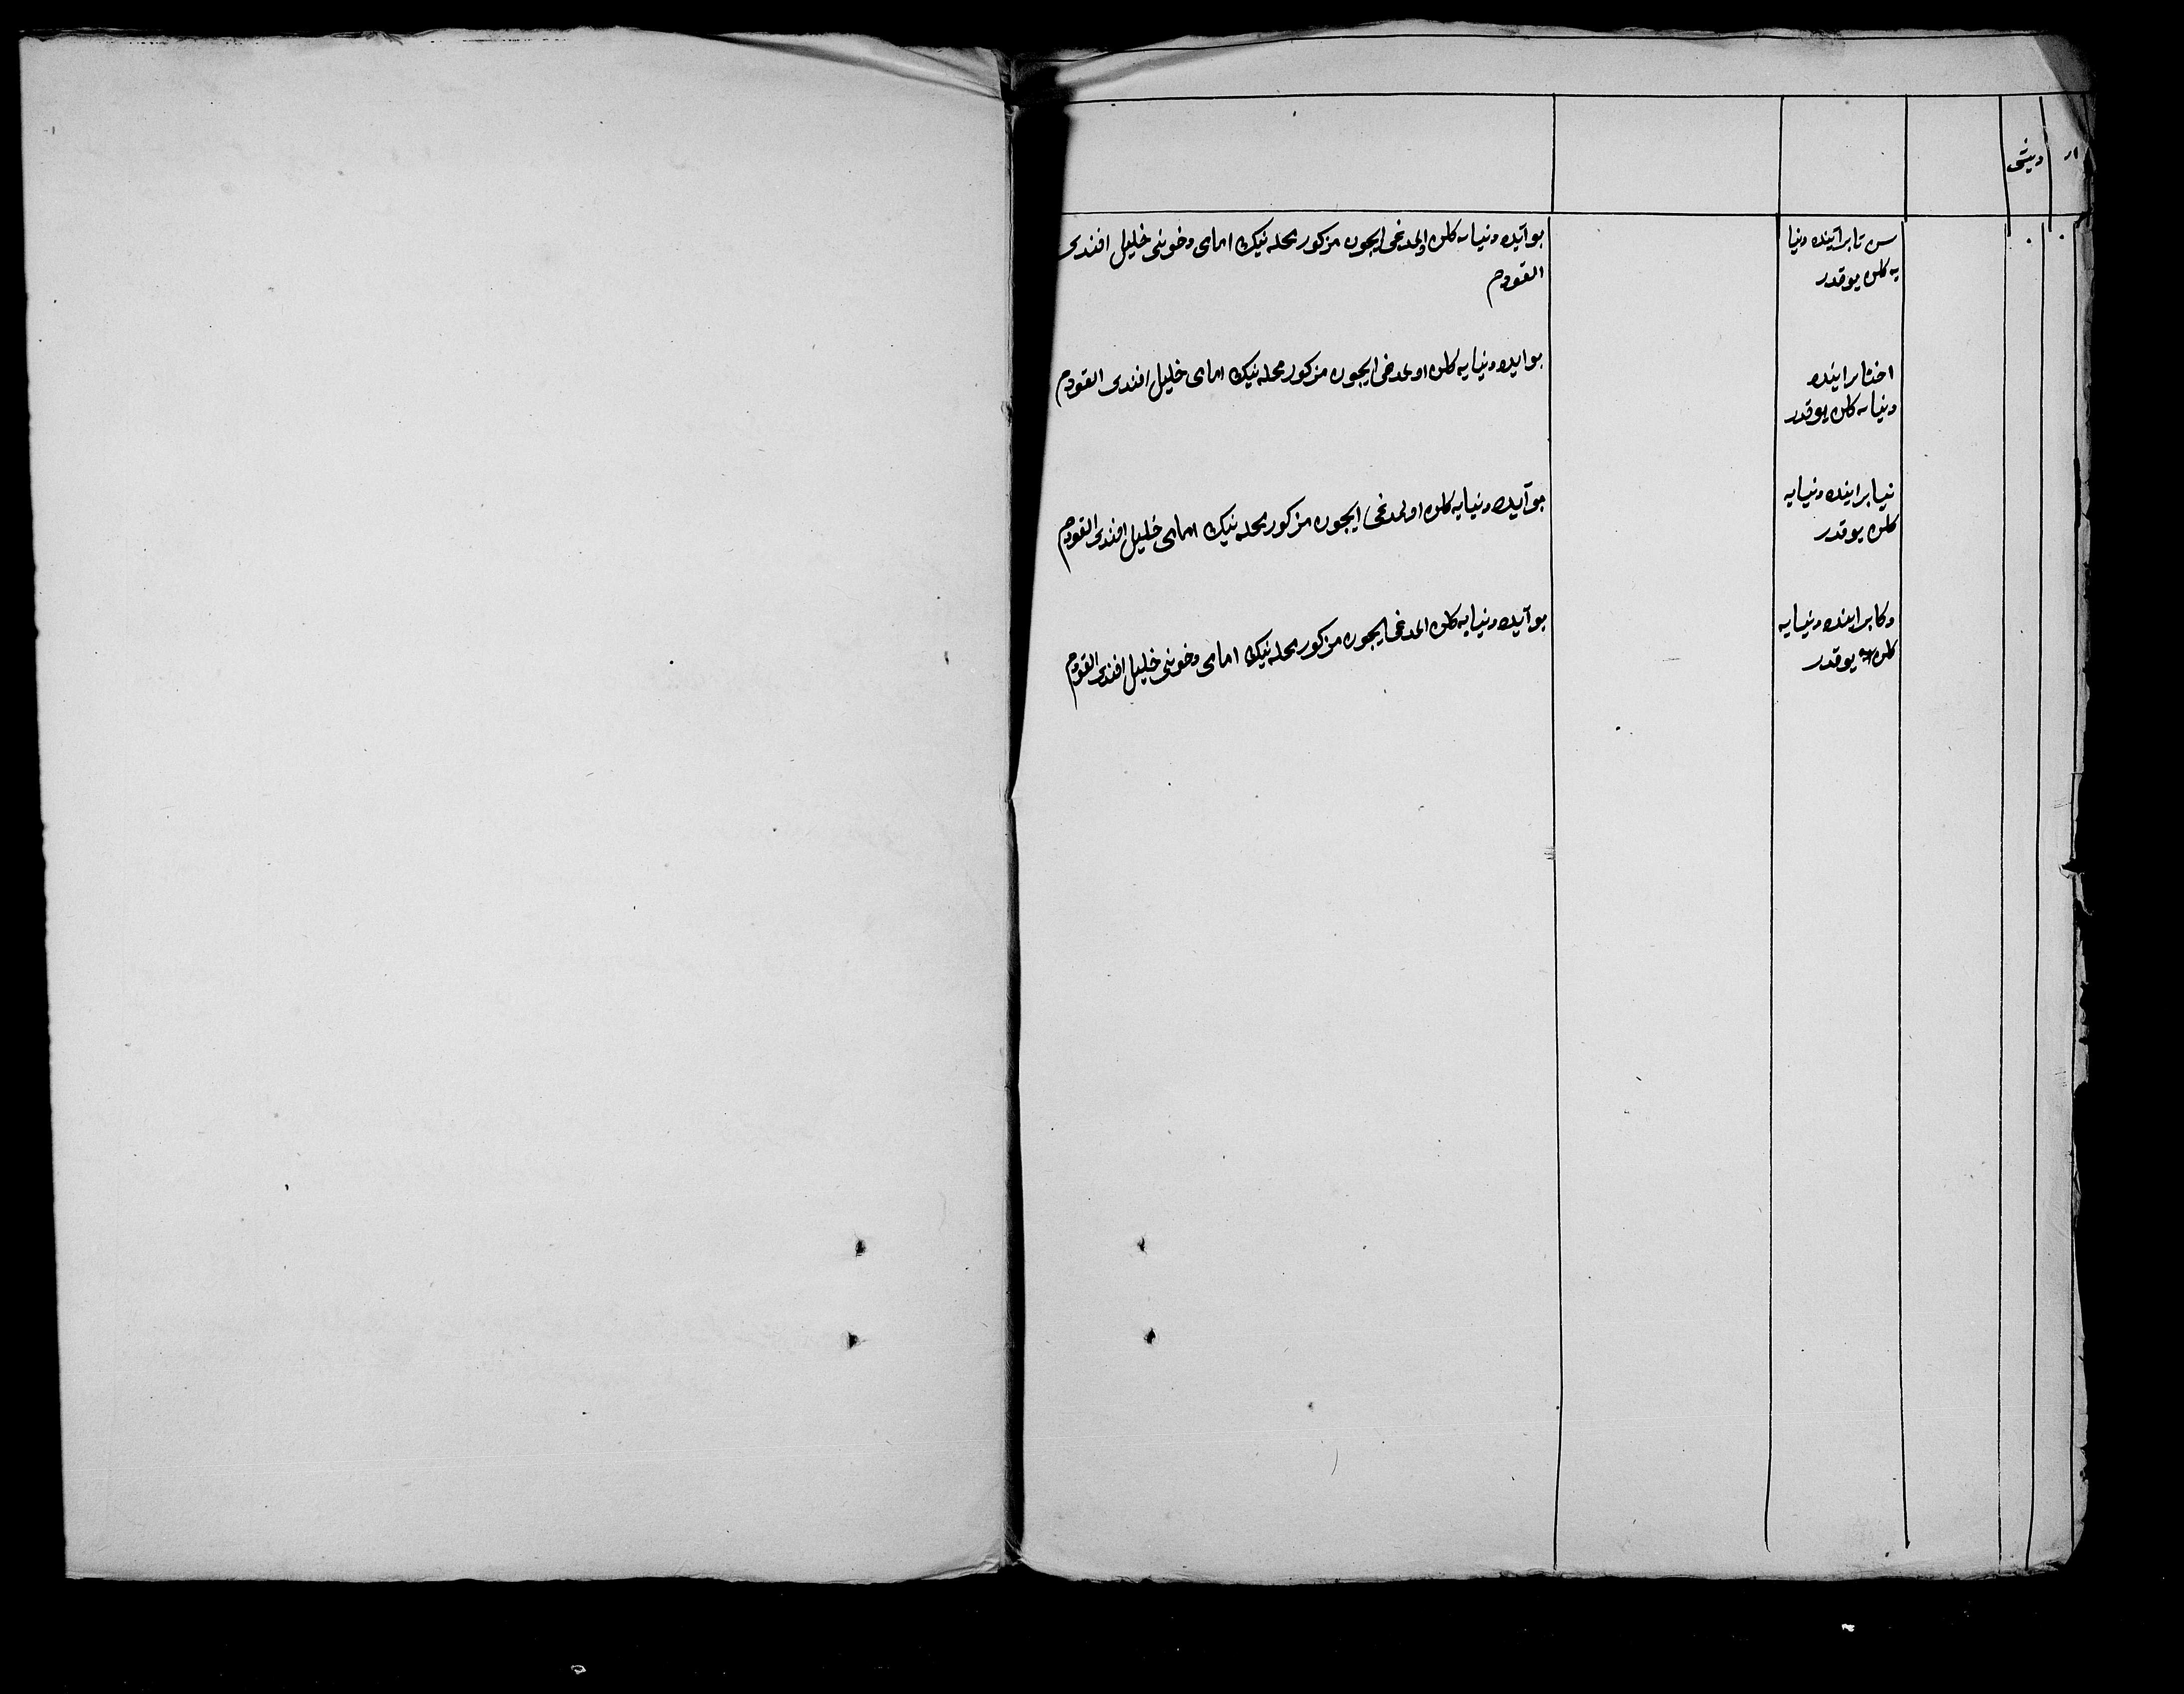 ار
دیشی
سن تابر آینده دنیا
یه کلن یوقدر
بو آیده دنیایه کلن اولمدغی ایچون مزکور محله نیک امامی وخونی خلیل افندی
القودم
اختابر اینده
دنیایه کلن یوقدر
بو ایده دنیایه کلن اولمدغی ایچون مزکور محله نیک امامی خلیل افندی القودم
نیابر اینده دنیایه
کلن یوقدر
بو آیده دنیایه کلن اولمدغی ایچون مزکور محله نیک امامی خلیل افندی القودم
دکابر اینده دنیایه
کلن یوقدر
بو آیده دنیایه کلن المدغی ایچون مزکور محله نیک امامی وخونی خلیل افندی القودم